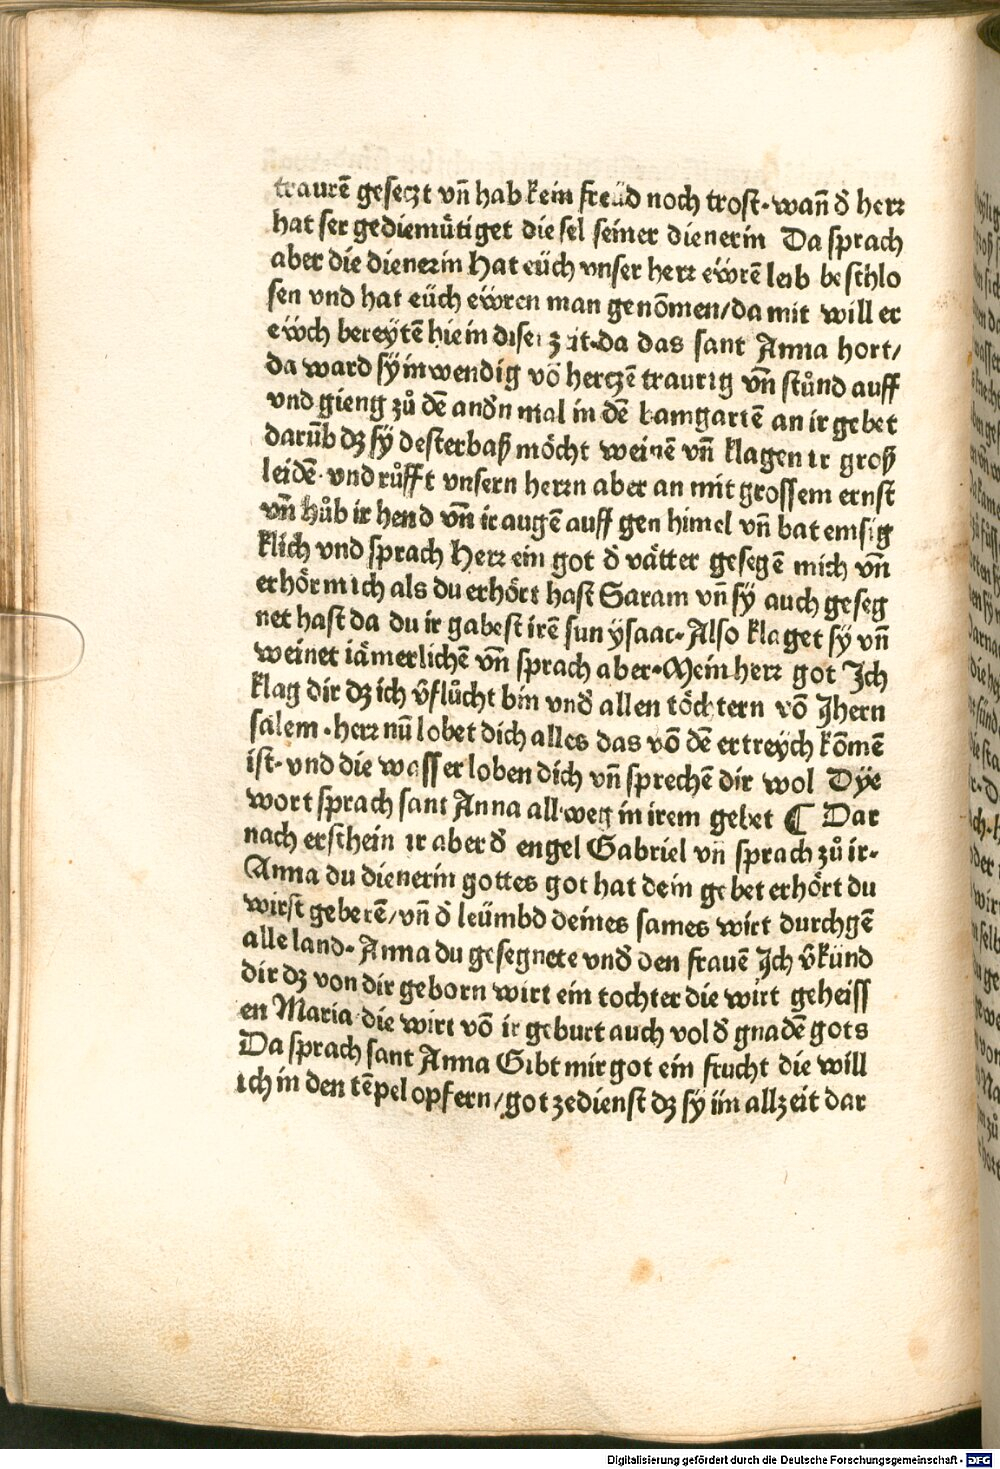 traurē geseczt vn̄ hab kein freüd noch trost · wan̄ d̄ herr
hat ser gediemuͤtiget die sel seiner dienerin Da sprach
aber die dienerin Hat eüch vnser herr ewrē leib beschlo
sen vnd hat eüch ewren man genōmen/da mit will er
ewch bereytē hie in diser zeit·da das sant Anna hort/
da ward sÿ inwendig vō herczē traurig vn̄ stuͦnd auff
vnd gieng zuͦ dē andn̄ mal in dē bamgartē an ir gebet
darūb dz sÿ desterbaß moͤcht weinē vn̄ klagen ir groß
leidē · vnd ruͦfft vnsern herrn aber an mit grossem ernst
vn̄ huͦb ir hend vn̄ ir augē auff gen himel vn̄ bat emsig
klich vnd sprach Herr ein got d̄ vaͤtter gesegē mich vn̄
erhoͤr mich als du erhoͤrt hast Saram vn̄ sÿ auch geseg
net hast da du ir gabest irē sun ysaac · Also klaget sÿ vn̄
weinet iaͤmerlichē vn̄ sprach aber · Mein herr got Ich
klag dir dz ich v̄fluͦcht bin vnd̄ allen toͤchtern vō Jheru
salem · herr nū lobet dich alles das vō dē ertreych kōmē
ist · vnd die wasser loben dich vn̄ sprechē dir wol Dye
wort sprach sant Anna allweg in irem gebet ¶ Dar
nach erschein ir aber d̄ engel Gabriel vn̄ sprach zuͦ ir ·
Anna du dienerin gottes got hat dein gebet erhoͤrt du
wirst geberē/vn̄ d̄ leümbd deines sames wirt durchgē
alle land · Anna du gesegnete vnd̄ den frauē Ich v̄künd
dir dz von dir geborn wirt ein tochter die wirt geheiss
en Maria die wirt vō ir geburt auch vol d̄ gnadē gots
Da sprach sant Anna Gibt mir got ein frucht die will
ich in den tēpel opfern/got zedienst dz sÿ im allzeit dar
Digitalisierung gefördert durch die Deutsche Forschungsgemeinschaft - DFG